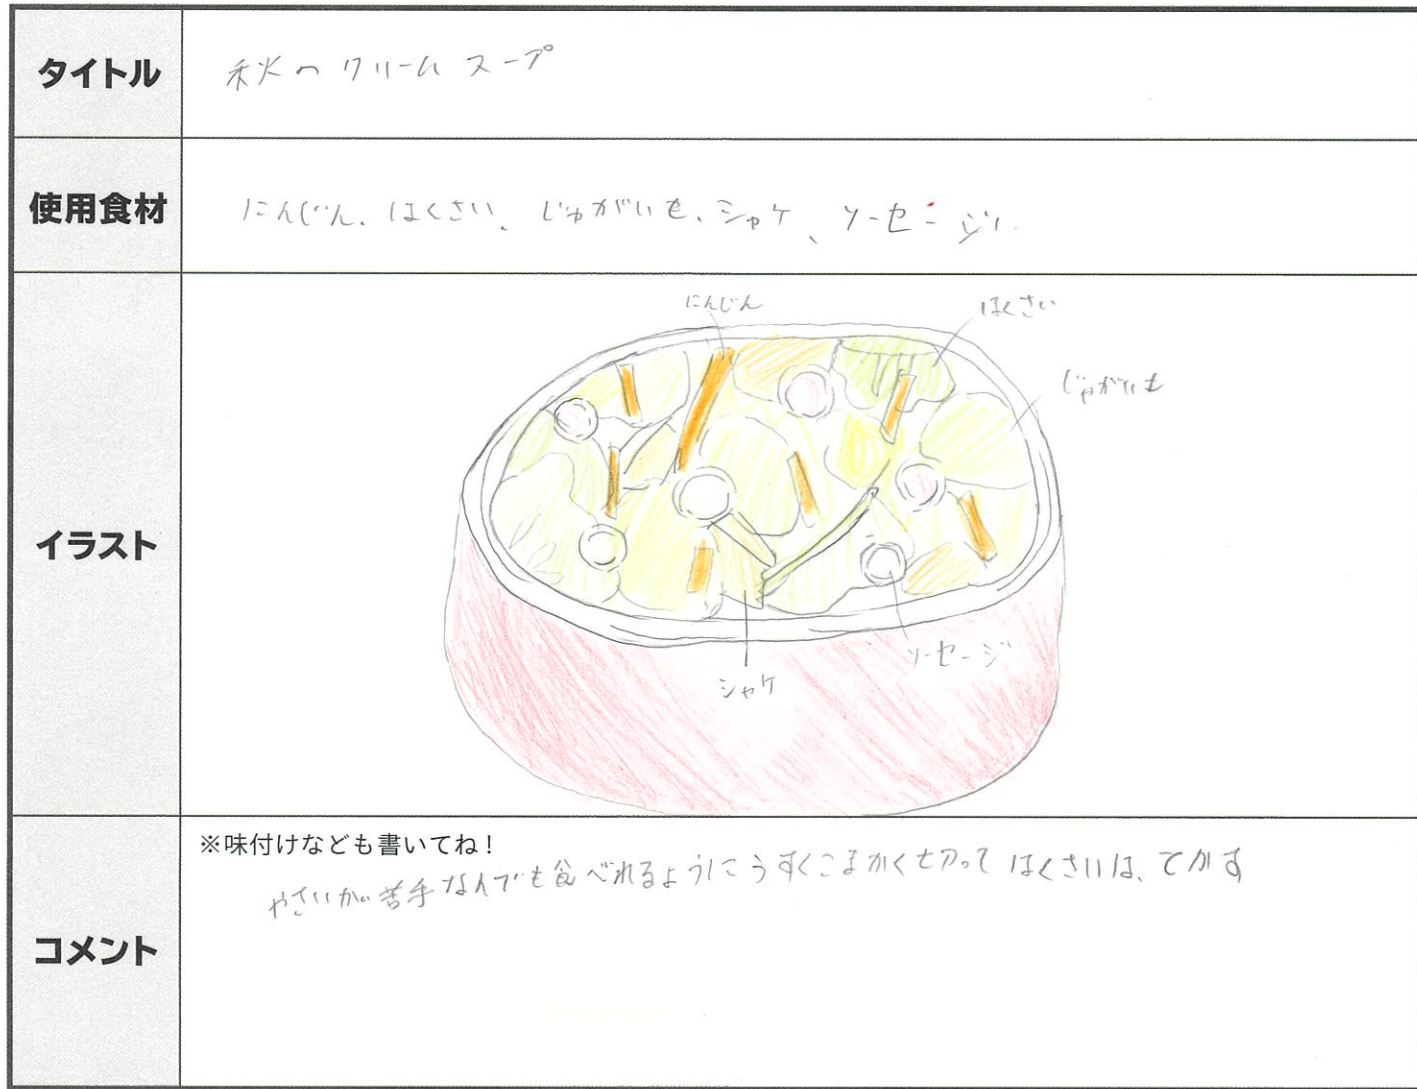 タイトル
秋のクリームスープ
使用食材
にんじん、はくさい、じゃがいも、シャケ、ソーセージ
イラスト
にんじん
はくさい
じゃがいも
シャケ
ソーセージ
コメント
※味付けなども書いてね!
やさいが苦手なんでも食べれるようにうすくこまかく切って はくさいは、